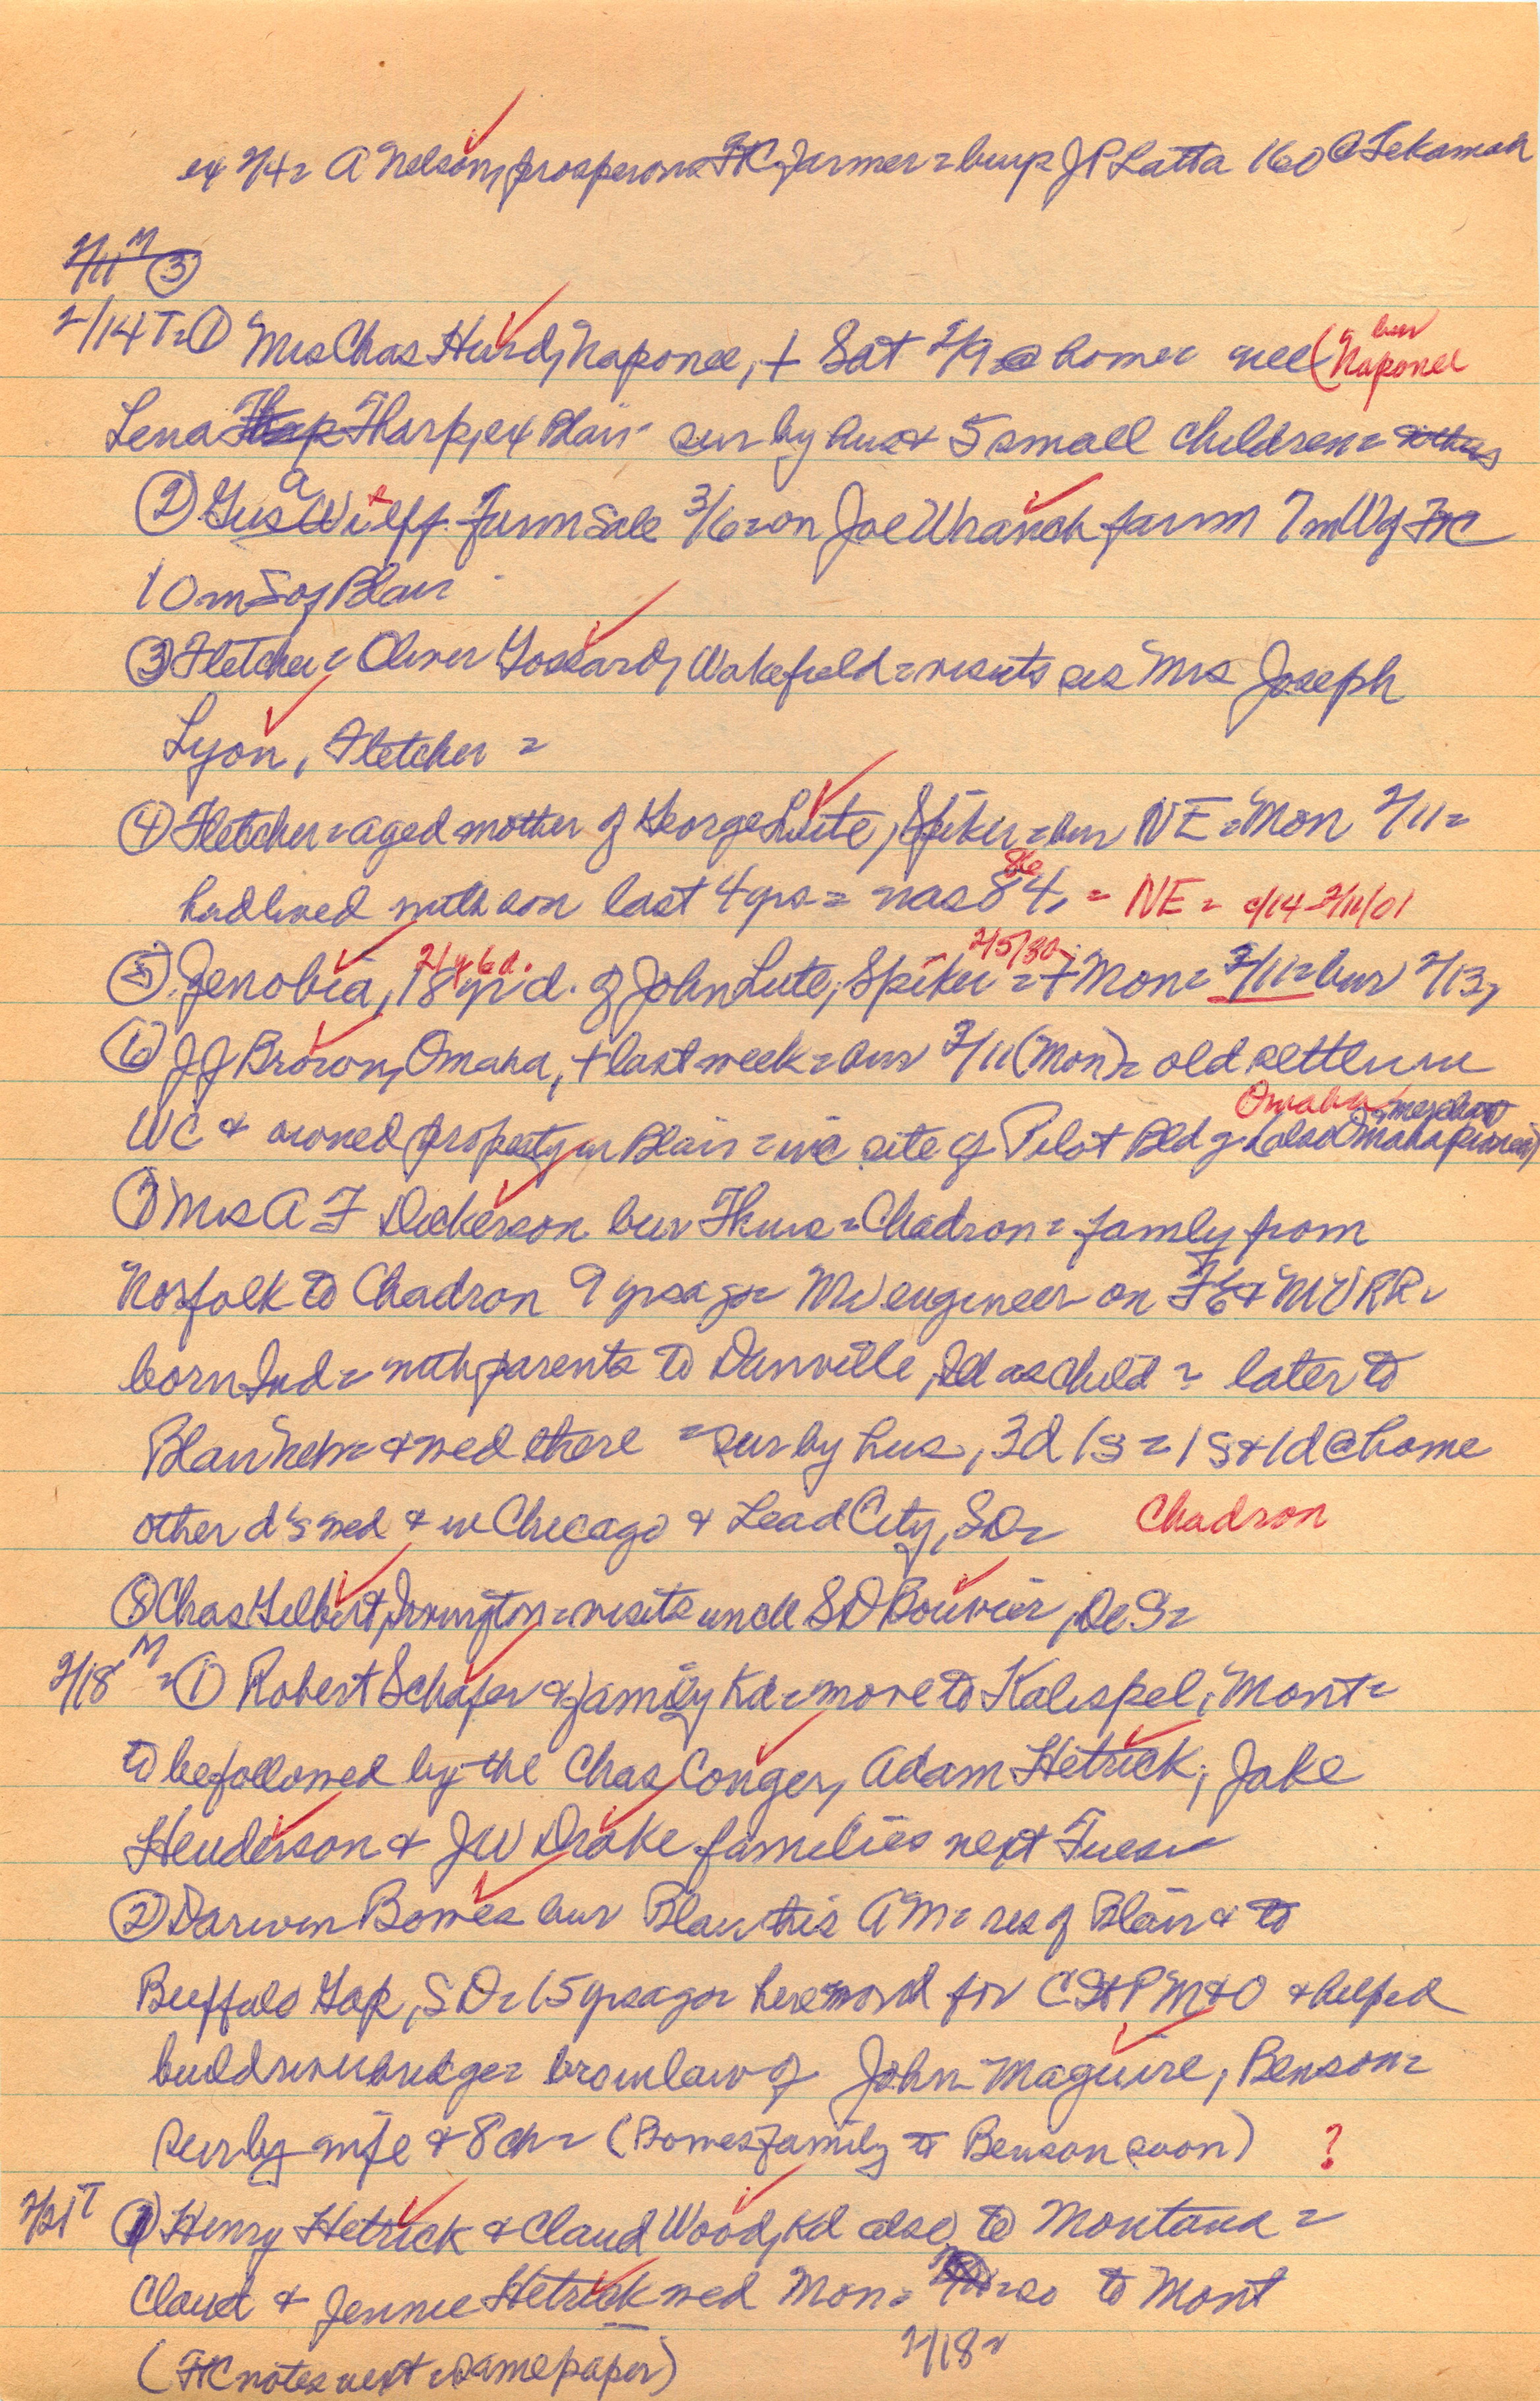 ex 2/4= A Nelson, prosperous FC farmer = buys J P Latta 160 @ Tekamah
2/11 M ③
2/14 T= ① Mrs Chas Hurd, Naponee, + Sat 2/9 @ home = nee (bur Naponee
Lena Tharp, ex Blair sur by hus & 5 small children =
② Gus A Wulff farm sale 3/6 = on Joe Wranch farm 7 m W of FC
10 m S of Blair
③ Fletcher = Oliver Gossard, Wakefield = visits sis Mrs Joseph
Lyon, Fletcher =
④ Fletcher = aged mother of George Lute, Spiker = bur NE = Mon 2/11 =
had lived with son last 4 yrs = was 84, = 86 NE = 2/11/01
⑤ Zenobia, 18 yr d. of John Lute, Spiker = + Mon = 2/11 = bur 2/13, 21y 6d. 2/5/80
⑥ J J Brown, Omaha, + last week = bur 2/11 (Mon) = old settler in
WC & owned property in Blair = inc site of Pilot Bldg = (also Omaha pioneer) Omaha merchant
⑦ Mrs A F Dickerson bur Thurs = Chadron = family from
Norfolk to Chadron 9 yrs ago = Mr engineer on FE & MV RR =
born Ind = with parents to Danville, Ill as child = later to
Blair Neb = & wed there = sur by hus, 3d 1s = 1s & 1d @ home
other d's wed & in Chicago & Lead City, SD = Chadron
⑧ Chas Gilbert, Irvington = visits uncle S D Bouvier, De S =
2/18 M = ① Robert Schafer & family Kd = move to Kalispel, Mont =
to be followed by the Chas Conger, Adam Hetrick, Jake
Henderson & J W Drake families next Tues =
② Darwin Bowes bur Blair this AM = res of Blair & to
Buffalo Gap, SD = 15 yrs ago = here word for C St P M & O & helped
build river bridge = bro in law of John Maguire, Benson =
sur by wife & 8 ch = (Bowes family to Benson soon) ?
2/21 T ① Henry Hetrick & Claud Wood, Kd also to Montana =
Claud & Jennie Hetrick wed Mon = = so to Mont
(FC notes next = same paper) 2/18 =